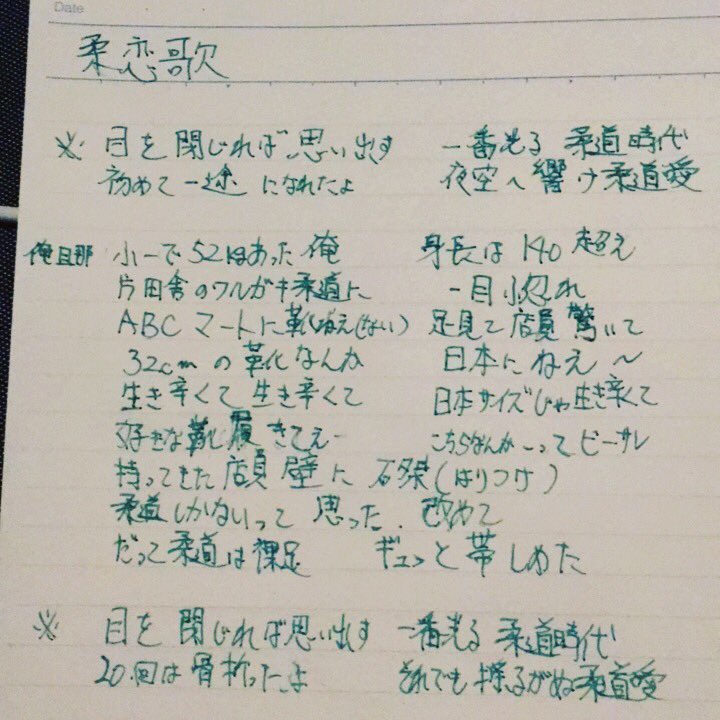 Date
柔恋歌
※ 目を閉じれば思い出す 一番光る 柔道時代
初めて一途になれたよ 夜空へ響け柔道愛
俺旦那 小一で52はあった俺 身長は140超え
片田舎のワルガキ柔道に 一目惚れ
ABCマートに靴ねえ(ない) 足見て店員驚いて
32cmの靴なんか 日本にねえ〜
生き辛くて生き辛くて 日本サイズじゃ生き辛くて
好きな靴履きてえー こちらなんかってビーサン
持ってきた店員 壁に 磔(はりつけ)
柔道しかないって思った. 改めて
だって柔道は裸足 ギュッと帯しめた
※ 目を閉じれば思い出す 一番光る 柔道時代
20回は骨折ったよ それでも揺るがぬ柔道愛